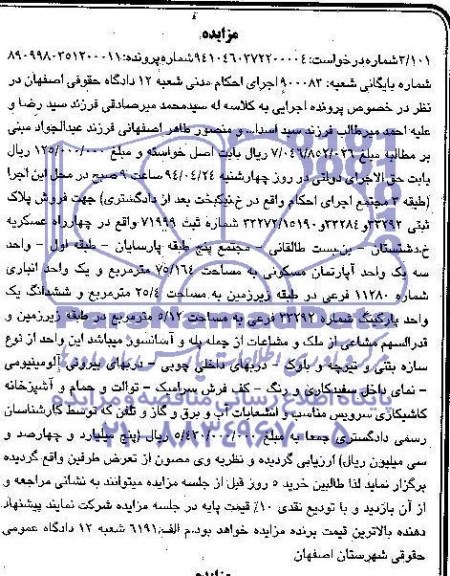 مزایده
۳/۱۰۱شماره درخواست: ۹۴۱۰۴۶۰۳۷۲۲۰۰۰۰۴شماره پرونده: ۸۹۰۹۹۸۰۳۵۱۲۰۰۰۱۱
شماره بایگانی شعبه: ۹۰۰۰۸۳ اجرای احکام مدنی شعبه ۱۲ دادگاه حقوقی اصفهان در
نظر در خصوص پرونده اجرایی به کلاسه له سیدمحمد میرصادقی فرزند سید رضا و
علیه احمد میرطالب فرزند سید اسدا... و منصور طاهر اصفهانی فرزند عبدالجواد مبنی
بر مطالبه مبلغ ۷/۰۴۶/۸۵۲/۰۲۶ ریال بابت اصل خواسته و مبلغ ۱۲۵/۰۰۰/۰۰۰ ریال
بابت حق الاجرای دولتی در روز چهارشنبه ۹۴/۰۴/۲۴ ساعت ۹ صبح در محل این اجرا
(طبقه ۳ مجتمع اجرای احکام واقع در خ.نیکبخت بعد از دادگستری) جهت فروش پلاک
ثبتی ۳۳۲۹۲و۳۳۲۸۴و۳۳۲۷۲/۱۵۱۹۰ شماره ثبت ۷۱۹۹۹ واقع در چهارراه عسکریه
خ.دشتستان - بن‌بست طالقانی - مجتمع پنج طبقه پارسایان - طبقه اول - واحد
سه یک واحد آپارتمان مسکونی به مساحت ۷۵/۱۶۴ مترمربع و یک واحد انباری
شماره ۱۱۲۸۰ فرعی در طبقه زیرزمین به مساحت ۲۵/۴ مترمربع و ششدانگ یک
واحد پارکینگ شماره ۳۳۲۹۲ فرعی به مساحت ۵/۱۲ مترمربع در طبقه زیرزمین و
قدرالسهم مشاعی از ملک و مشاعات از جمله پله و آسانسور میباشد این واحد از نوع
سازه بتنی و تیرچه و بلوک - دربهای داخلی چوبی - دربهای بیرونی آلومینیومی
- نمای داخل سفیدکاری و رنگ - کف فرش سرامیک - توالت و حمام و آشپزخانه
کاشیکاری سرویس مناسب و انشعابات آب و برق و گاز و تلفن که توسط کارشناسان
رسمی دادگستری جمعا به مبلغ ۵/۴۳۰/۰۰۰/۰۰۰ ریال (پنج میلیارد و چهارصد و
سی میلیون ریال) ارزیابی گردیده و نظریه وی مصون از تعرض طرفین واقع گردیده
برگزار نماید لذا طالبین خرید ۵ روز قبل از جلسه مزایده میتوانند به نشانی مراجعه و
از آن بازدید و با تودیع نقدی ۱۰٪ قیمت پایه در جلسه مزایده شرکت نمایند پیشنهاد
دهنده بالاترین قیمت برنده مزایده خواهد بود.م الف:۶۱۹۱ شعبه ۱۲ دادگاه عمومی
حقوقی شهرستان اصفهان